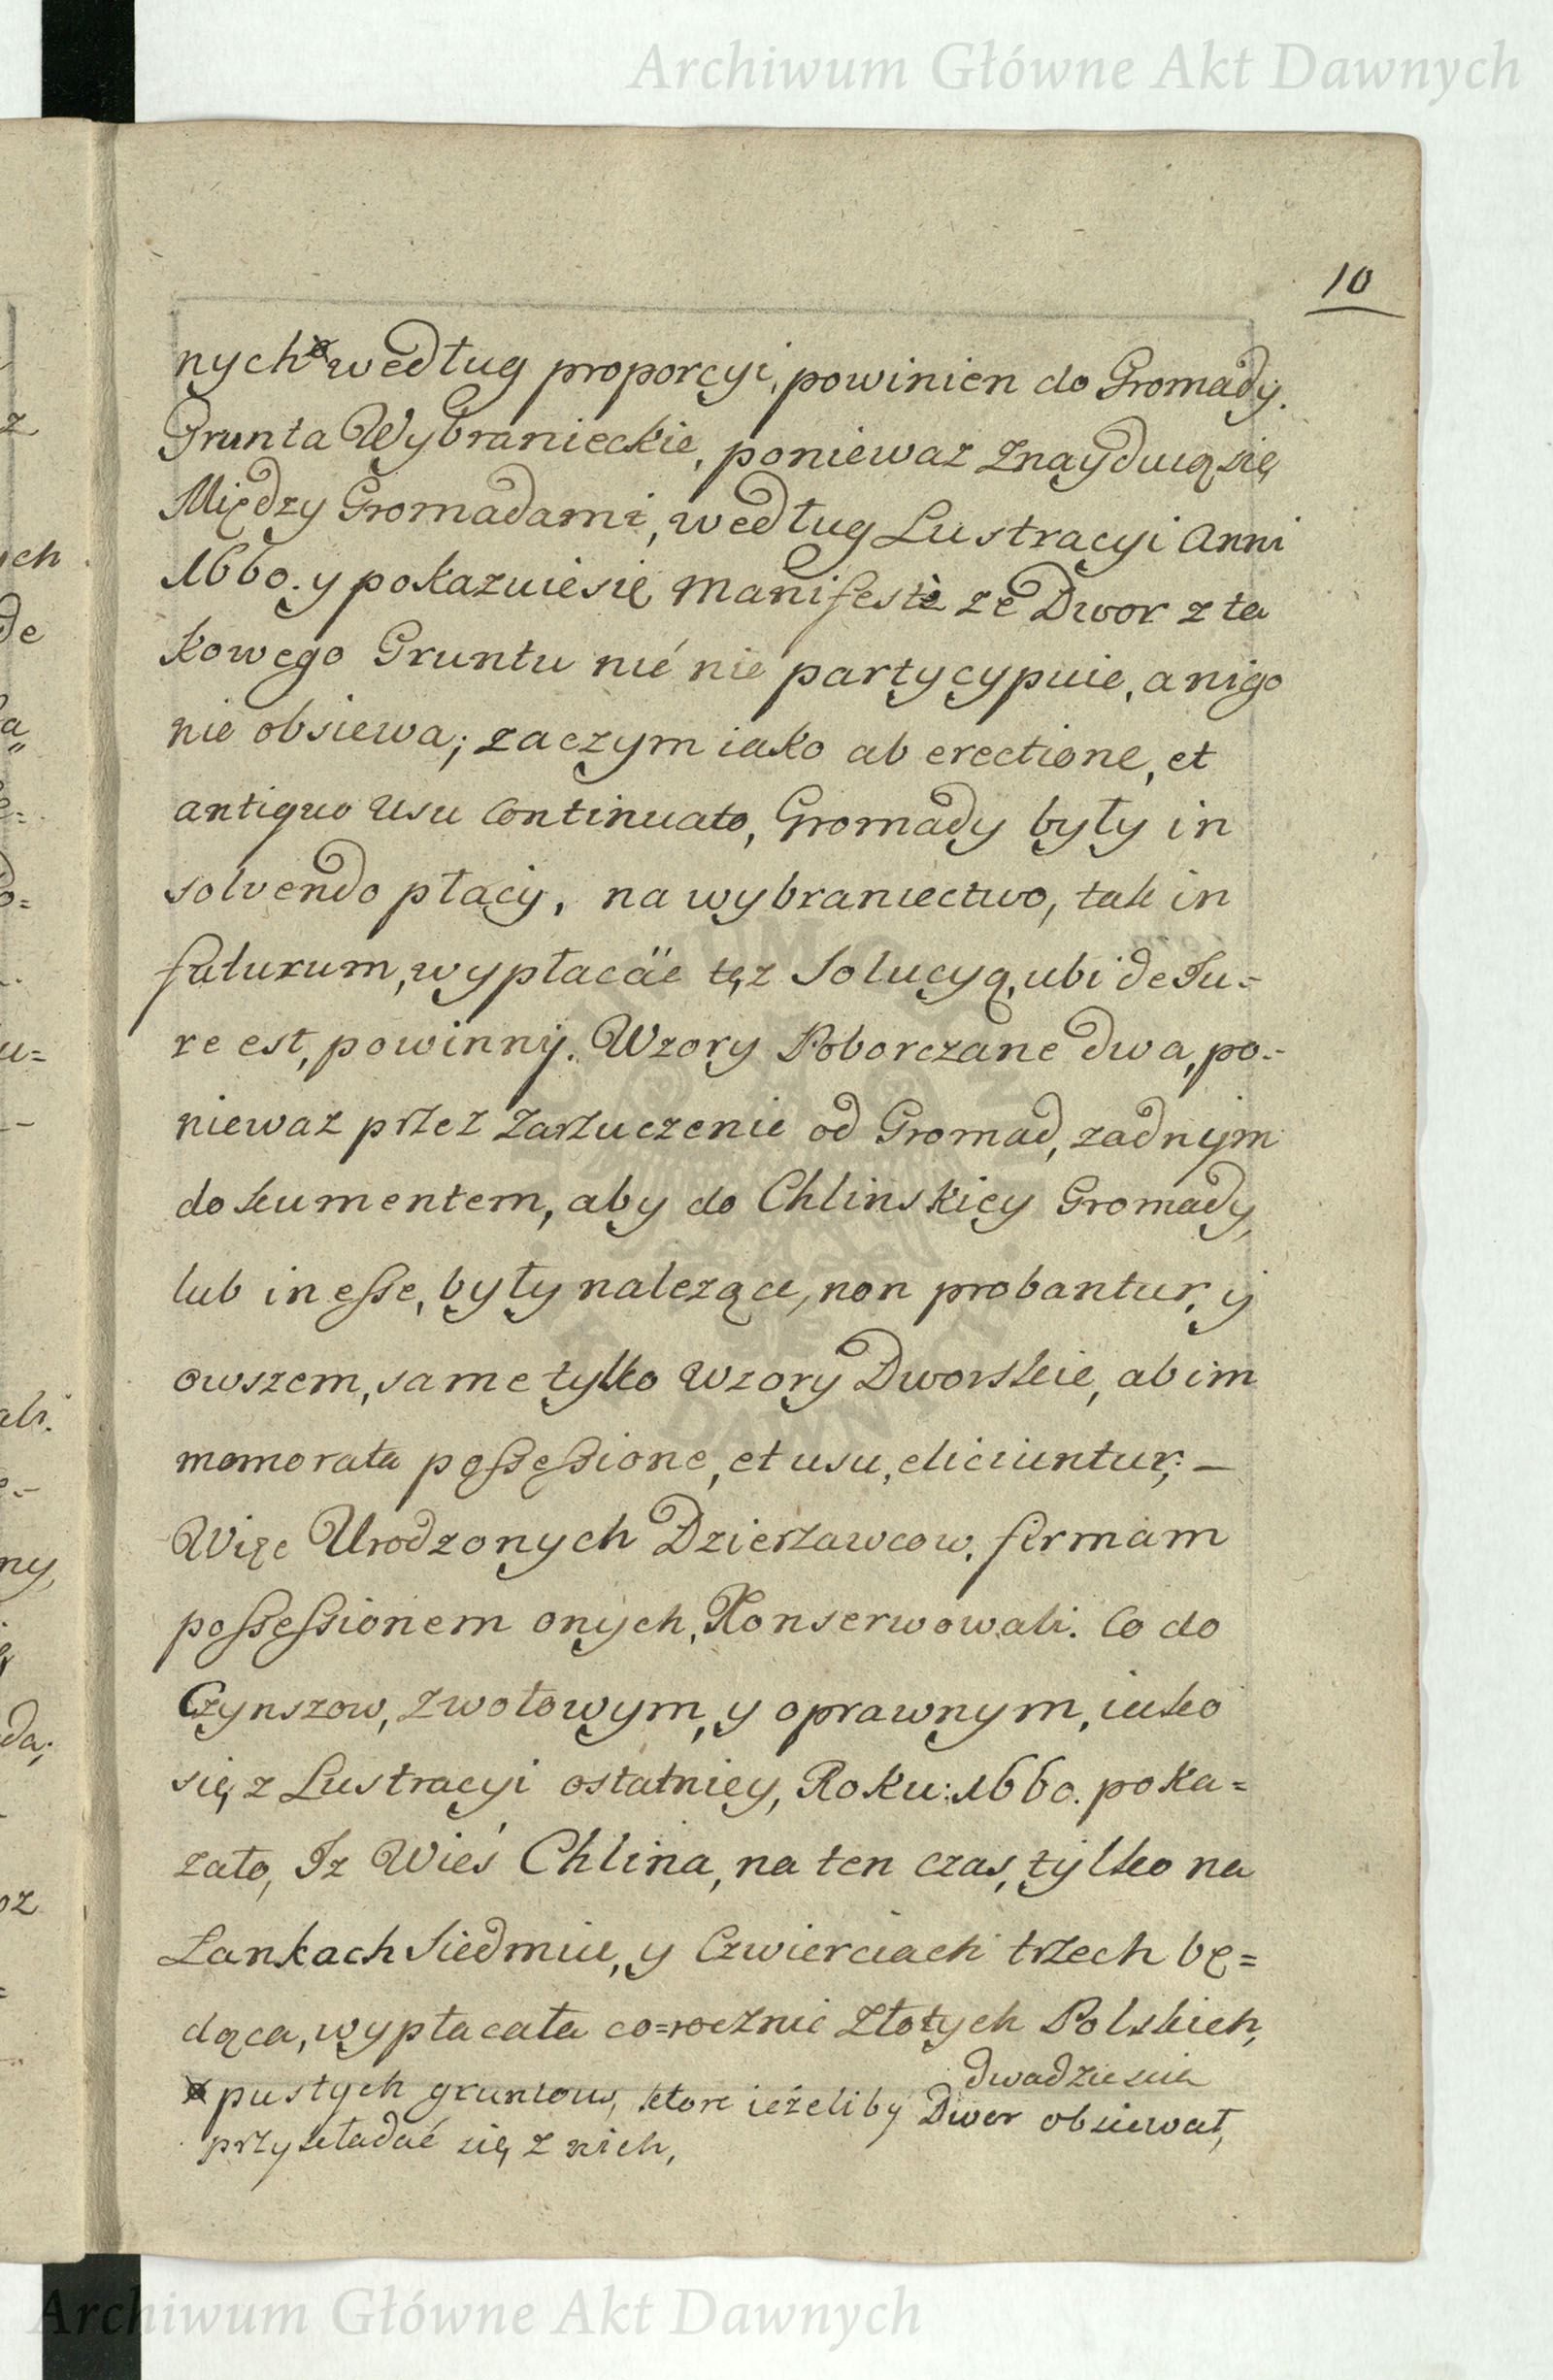 Archiwum Główne Akt Dawnych
10
nych według proporcyi, powinien do Gromady.
Grunta Wybranieckie, poniewaz znayduią się
Między Gromadami, według Lustracyi Anni
1660. y pokazuie się manifestè ze Dwor z ta
kowego Gruntu nić nie partycypuie, ani go
nie obsiewa; zaczym iako ab erectione, et
antiquo usu Continuato, Gromady były in
solvendo płacy, na wybraniectwo, tak in
futurum, wypłacäć tęz Solucyą, ubi de Ju=
re est, powinny. Wzory Poborczane dwa, po=
niewaz przez Zarzuczenie od Gromad, zadnym
dokumentem, aby do Chlinskiey Gromady,
lub in esse, były nalezące, non probantur, y
owszem, same tylko Wzory Dworskie, ab im
memorata possessione, et usu, eliciuntur; —
Więc Urodzonych Dzierzawcow, firmam
possessionem onych, Konserwowali. Co do
Czynszow, zwołowym, y oprawnym, iako
się z Lustracyi ostatniey, Roku: 1660. poka=
zało, Iz Wieś Chlina, na ten czas, tylko na
Łankach Siedmiu, y Czwierciach trzech bę=
dąca, wypłacała co=rocznie Złotych Polskich,
dwadziescia
pustych gruntow, ktore ieżeliby Dwor obsiewał,
przykładać się z nich,
z
ych
de
u=
ali.
ny,
da;
oz
Archiwum Główne Akt Dawnych